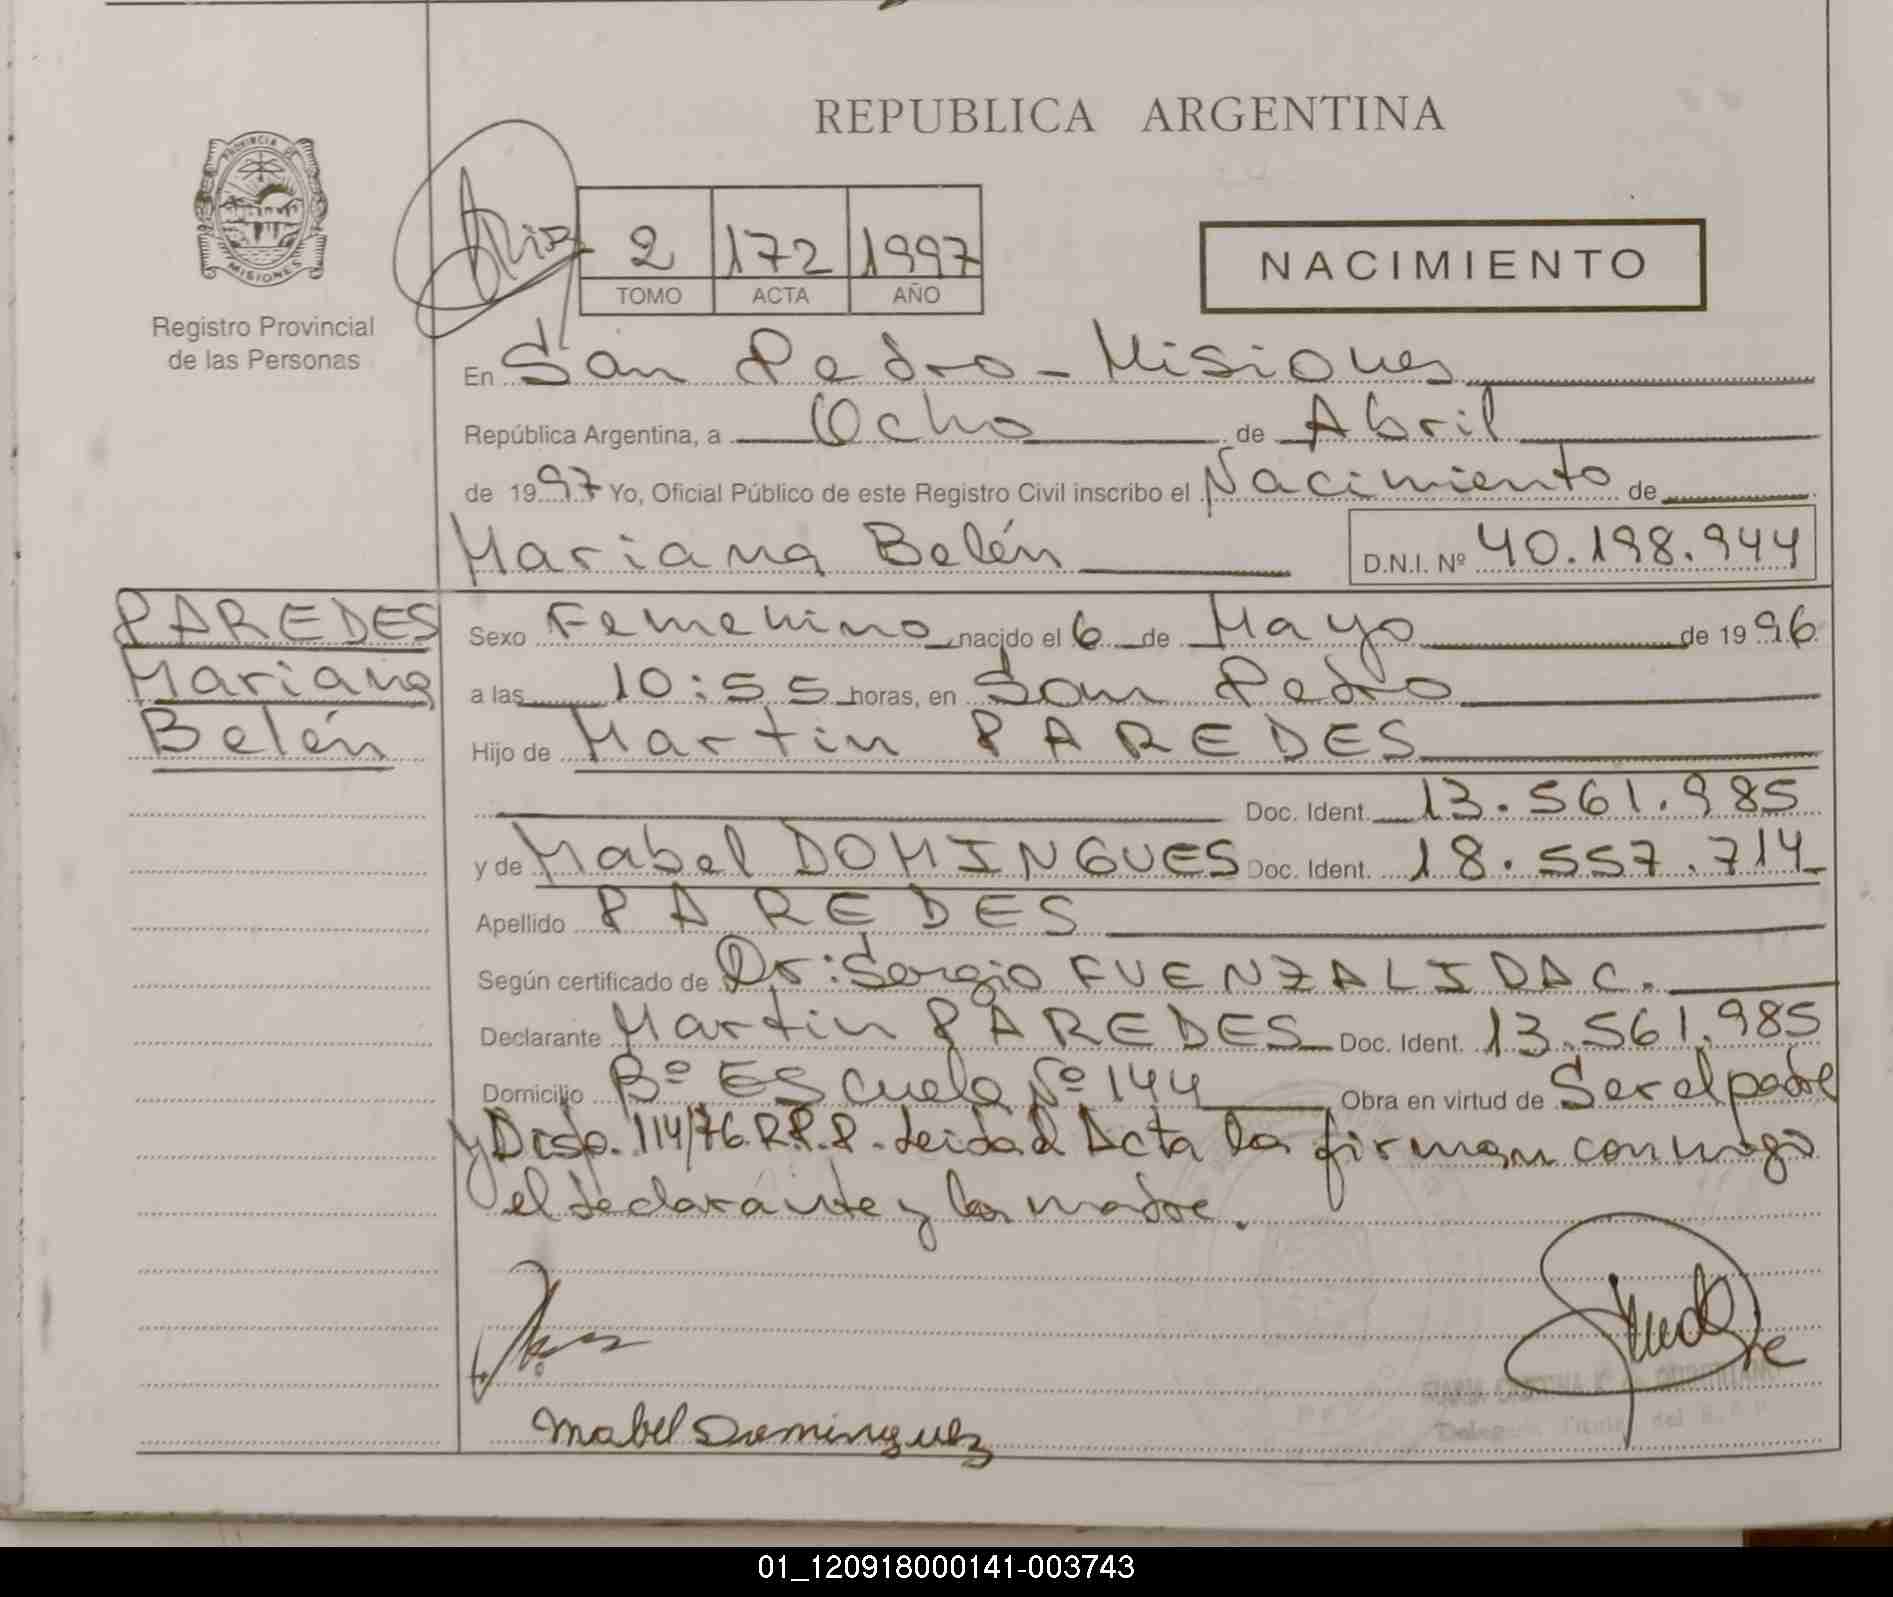 REPUBLICA ARGENTINA
PROVINCIA DE
MISIONES
Registro Provincial
de las Personas
2 172 1997
TOMO ACTA AÑO
NACIMIENTO
En San Pedro - Misiones
República Argentina, a Ocho de Abril
de 1997 Yo, Oficial Público de este Registro Civil inscribo el Nacimiento de
Mariana Belén D.N.I. Nº 40.198.944
PAREDES
Mariana
Belén
Sexo Femenino nacido el 6 de Mayo de 1996
a las 10:55 horas, en San Pedro
Hijo de Martin PAREDES
Doc. Ident. 13.561.985
y de Mabel DOMINGUES Doc. Ident. 18.557.714
Apellido PAREDES
Según certificado de Dr: Sergio FUENZALIDA C.
Declarante Martin PAREDES Doc. Ident. 13.561.985
Domicilio Bº Escuela Nº 144 Obra en virtud de Ser el padre
y Disp. 114/76 R.P.P. Leida el Acta la firman conmigo
el declarante y la madre.
Mabel Dominguez
01_120918000141-003743